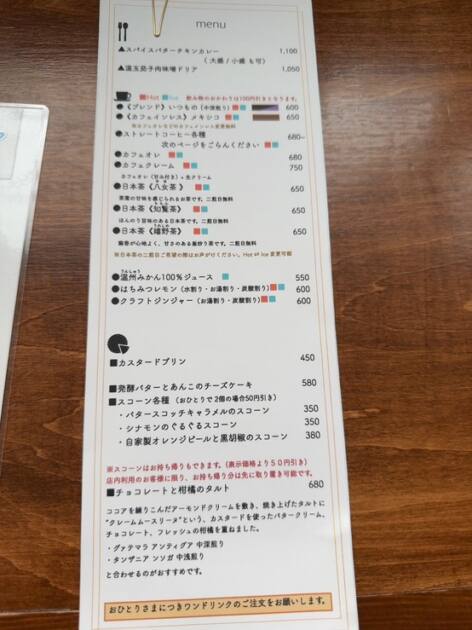 menu
▲スパイスバターチキンカレー 1,100
(大盛/小盛 も可)
▲温玉茄子肉味噌ドリア 1,050
■Hot ■Ice 飲み物のおかわりは100円引きとなります。
●《ブレンド》いつもの(中深煎り) 600
●《カフェインレス》メキシコ 650
●ストレートコーヒー各種 680~
次のページをごらんください
●カフェオレ 680
●カフェクレーム 750
カフェオレ(甘み付き)+生クリーム
●日本茶《八女茶》 650
茶葉の甘味を感じられるお茶です。二煎目無料
●日本茶《知覧茶》 650
ほんのり旨味のある日本茶です。二煎目無料
●日本茶《嬉野茶》 650
麻香が心地よく、甘さのある釜炒り茶です。二煎目無料
●温州みかん100%ジュース 550
●はちみつレモン(水割り・お湯割り・炭酸割り) 600
●クラフトジンジャー(お湯割り・炭酸割り) 600
■カスタードプリン 450
■発酵バターとあんこのチーズケーキ 580
■スコーン各種(おひとりで2個の場合50円引き)
・バタースコッチキャラメルのスコーン 350
・シナモンのぐるぐるスコーン 350
・自家製オレンジピールと黒胡椒のスコーン 380
※スコーンはお持ち帰りもできます。(表示価格より50円引き)
店内利用のお客様に限り、お持ち帰り分は先に取り置き可能です。
■チョコレートと柑橘のタルト 680
ココアを練りこんだアーモンドクリームを敷き、焼き上げたタルトに
"クレームムースリーヌ"という、カスタードを使ったバタークリーム、
チョコレート、フレッシュの柑橘を重ねました。
・グァテマラ アンティグア 中深煎り
・タンザニア ンソガ 中浅煎り
と合わせるのがおすすめです。
おひとりさまにつきワンドリンクのご注文をお願いします。